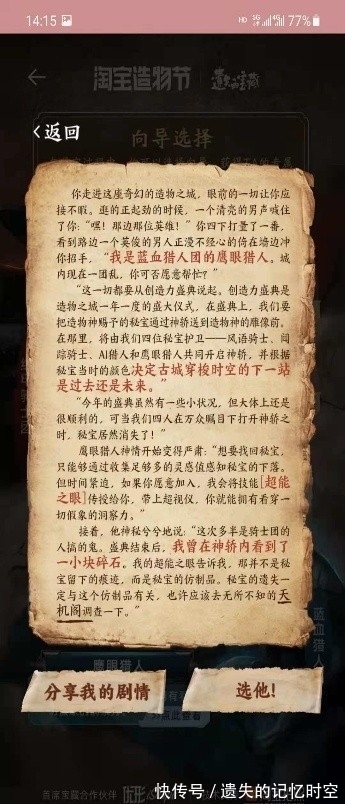 14:15
HD 5G 4G 77%
淘宝造物节 遗失的宝藏
返回
向导选择
你走进这座奇幻的造物之城,眼前的一切让你应
接不暇。逛的正起劲的时候,一个清亮的男声喊住
了你:“嘿!那边那位英雄!”你四下打量了一番,
看到路边一个英俊的男人正漫不经心的倚在墙边冲
你招手,“我是蓝血猎人团的鹰眼猎人。城
内现在一团乱,你可否愿意帮忙?”
“这一切都要从创造力盛典说起。创造力盛典是
造物之城一年一度的盛大仪式,在盛典上,我们要
把造物神赐予的秘宝通过神轿送到造物神的雕像前。
在那里,将由我们四位秘宝护卫——风语骑士、闻
踪骑士、AI猎人和鹰眼猎人共同开启神轿,并根据
秘宝当时的颜色决定古城穿梭时空的下一站
是过去还是未来。”
“今年的盛典虽然有一些小状况,但大体上还是
很顺利的,可当我们四人在万众瞩目下打开神轿之
时,秘宝居然消失了!”
鹰眼猎人神情开始变得严肃:“想要找回秘宝,
只能够通过收集足够多的灵感值感知秘宝的下落。
但时间紧迫,如果你愿意加入,我会将技能[超能
之眼]传授给你,带上超视仪,你就能拥有看穿一
切假象的洞察力。”
接着,他神秘兮兮地说:“这次多半是骑士团的
人搞的鬼。盛典结束后,我曾在神轿内看到了
一小块碎石。我的超能之眼告诉我,那并不是秘
宝留下的痕迹,而是秘宝的仿制品。秘宝的遗失一
定与这个仿制品有关,也许应该去无所不知的天
机阁调查一下。”
鹰眼猎人
蓝血猎人
分享我的剧情
选他!
点此查看
百深宝藏合作伙伴
快传号/遗失的记忆时空